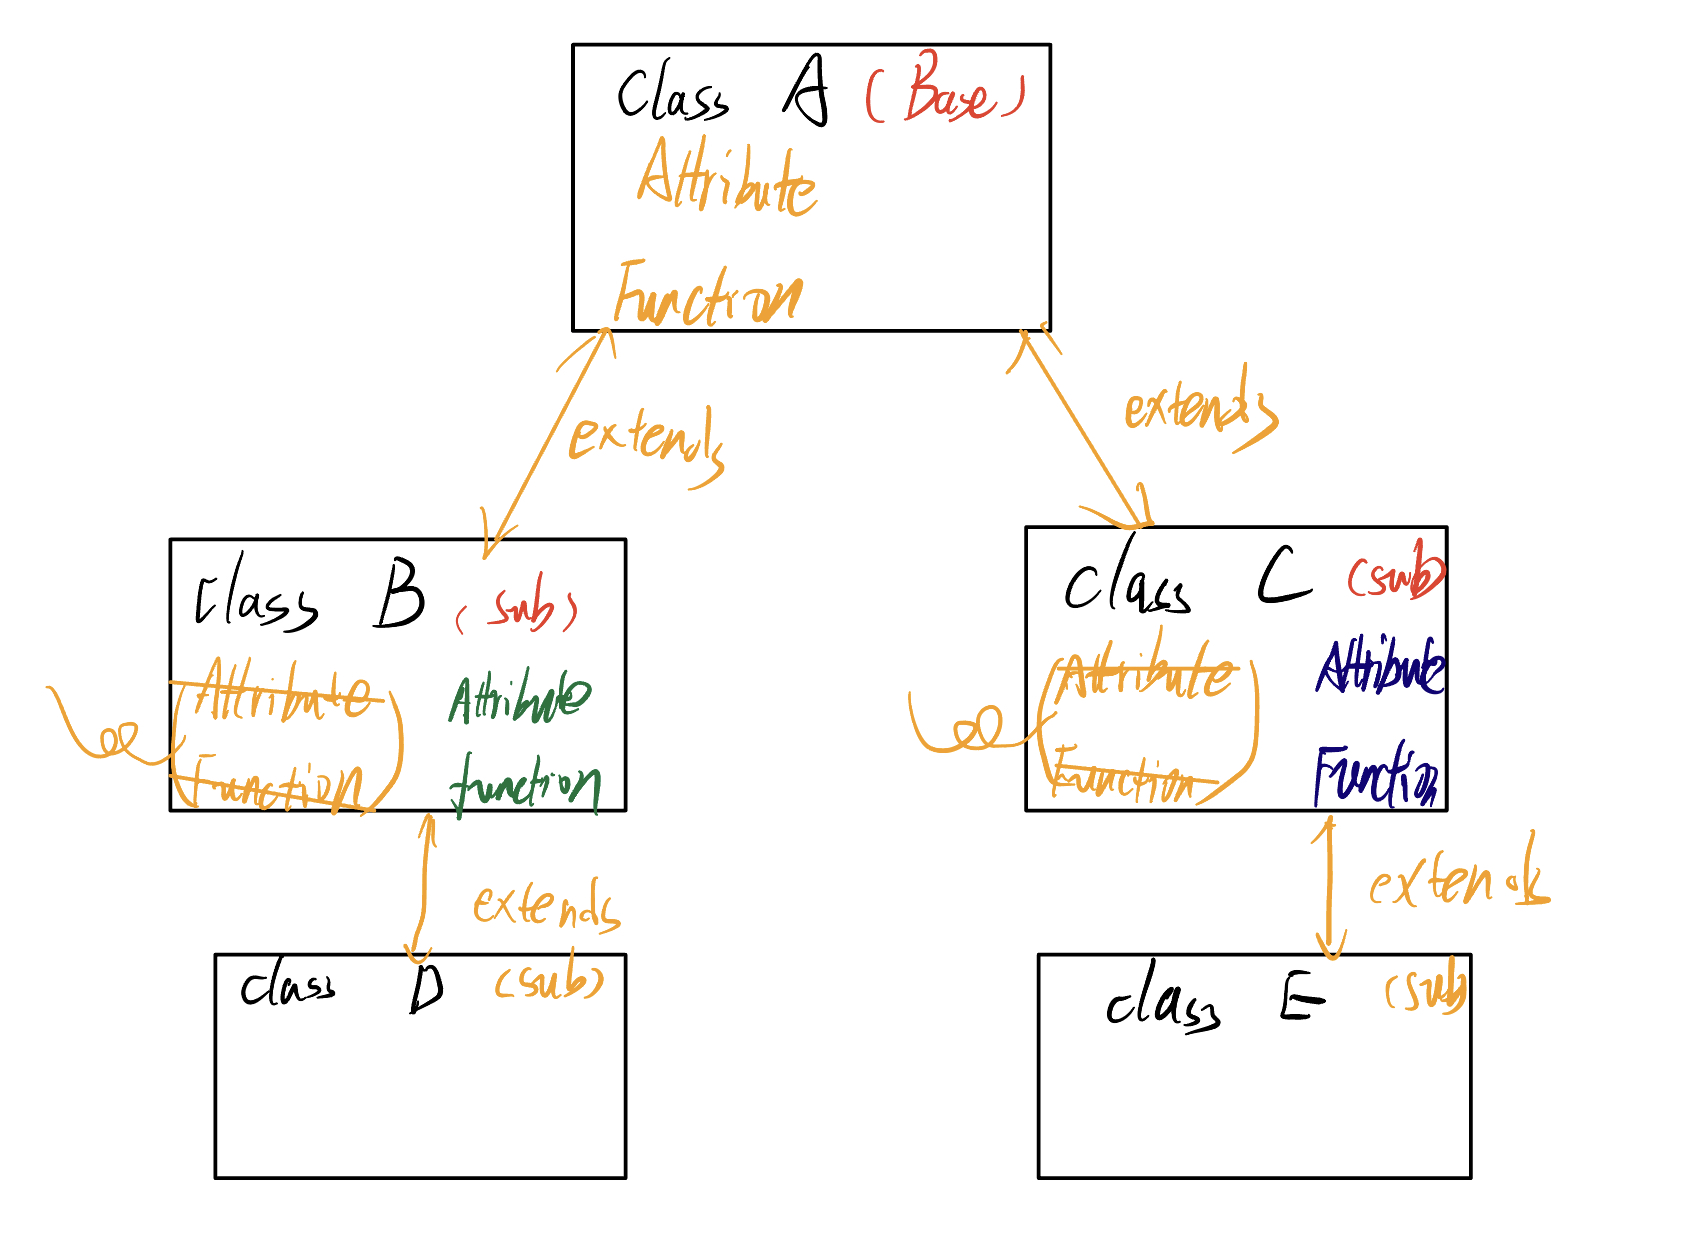 Class A (Base)
Attribute
Function
extends
extends
Class B (sub)
Attribute Attribute
Function function
Class C (sub)
Attribute Attribute
Function Function
extends
extends
class D (sub)
class E (sub)